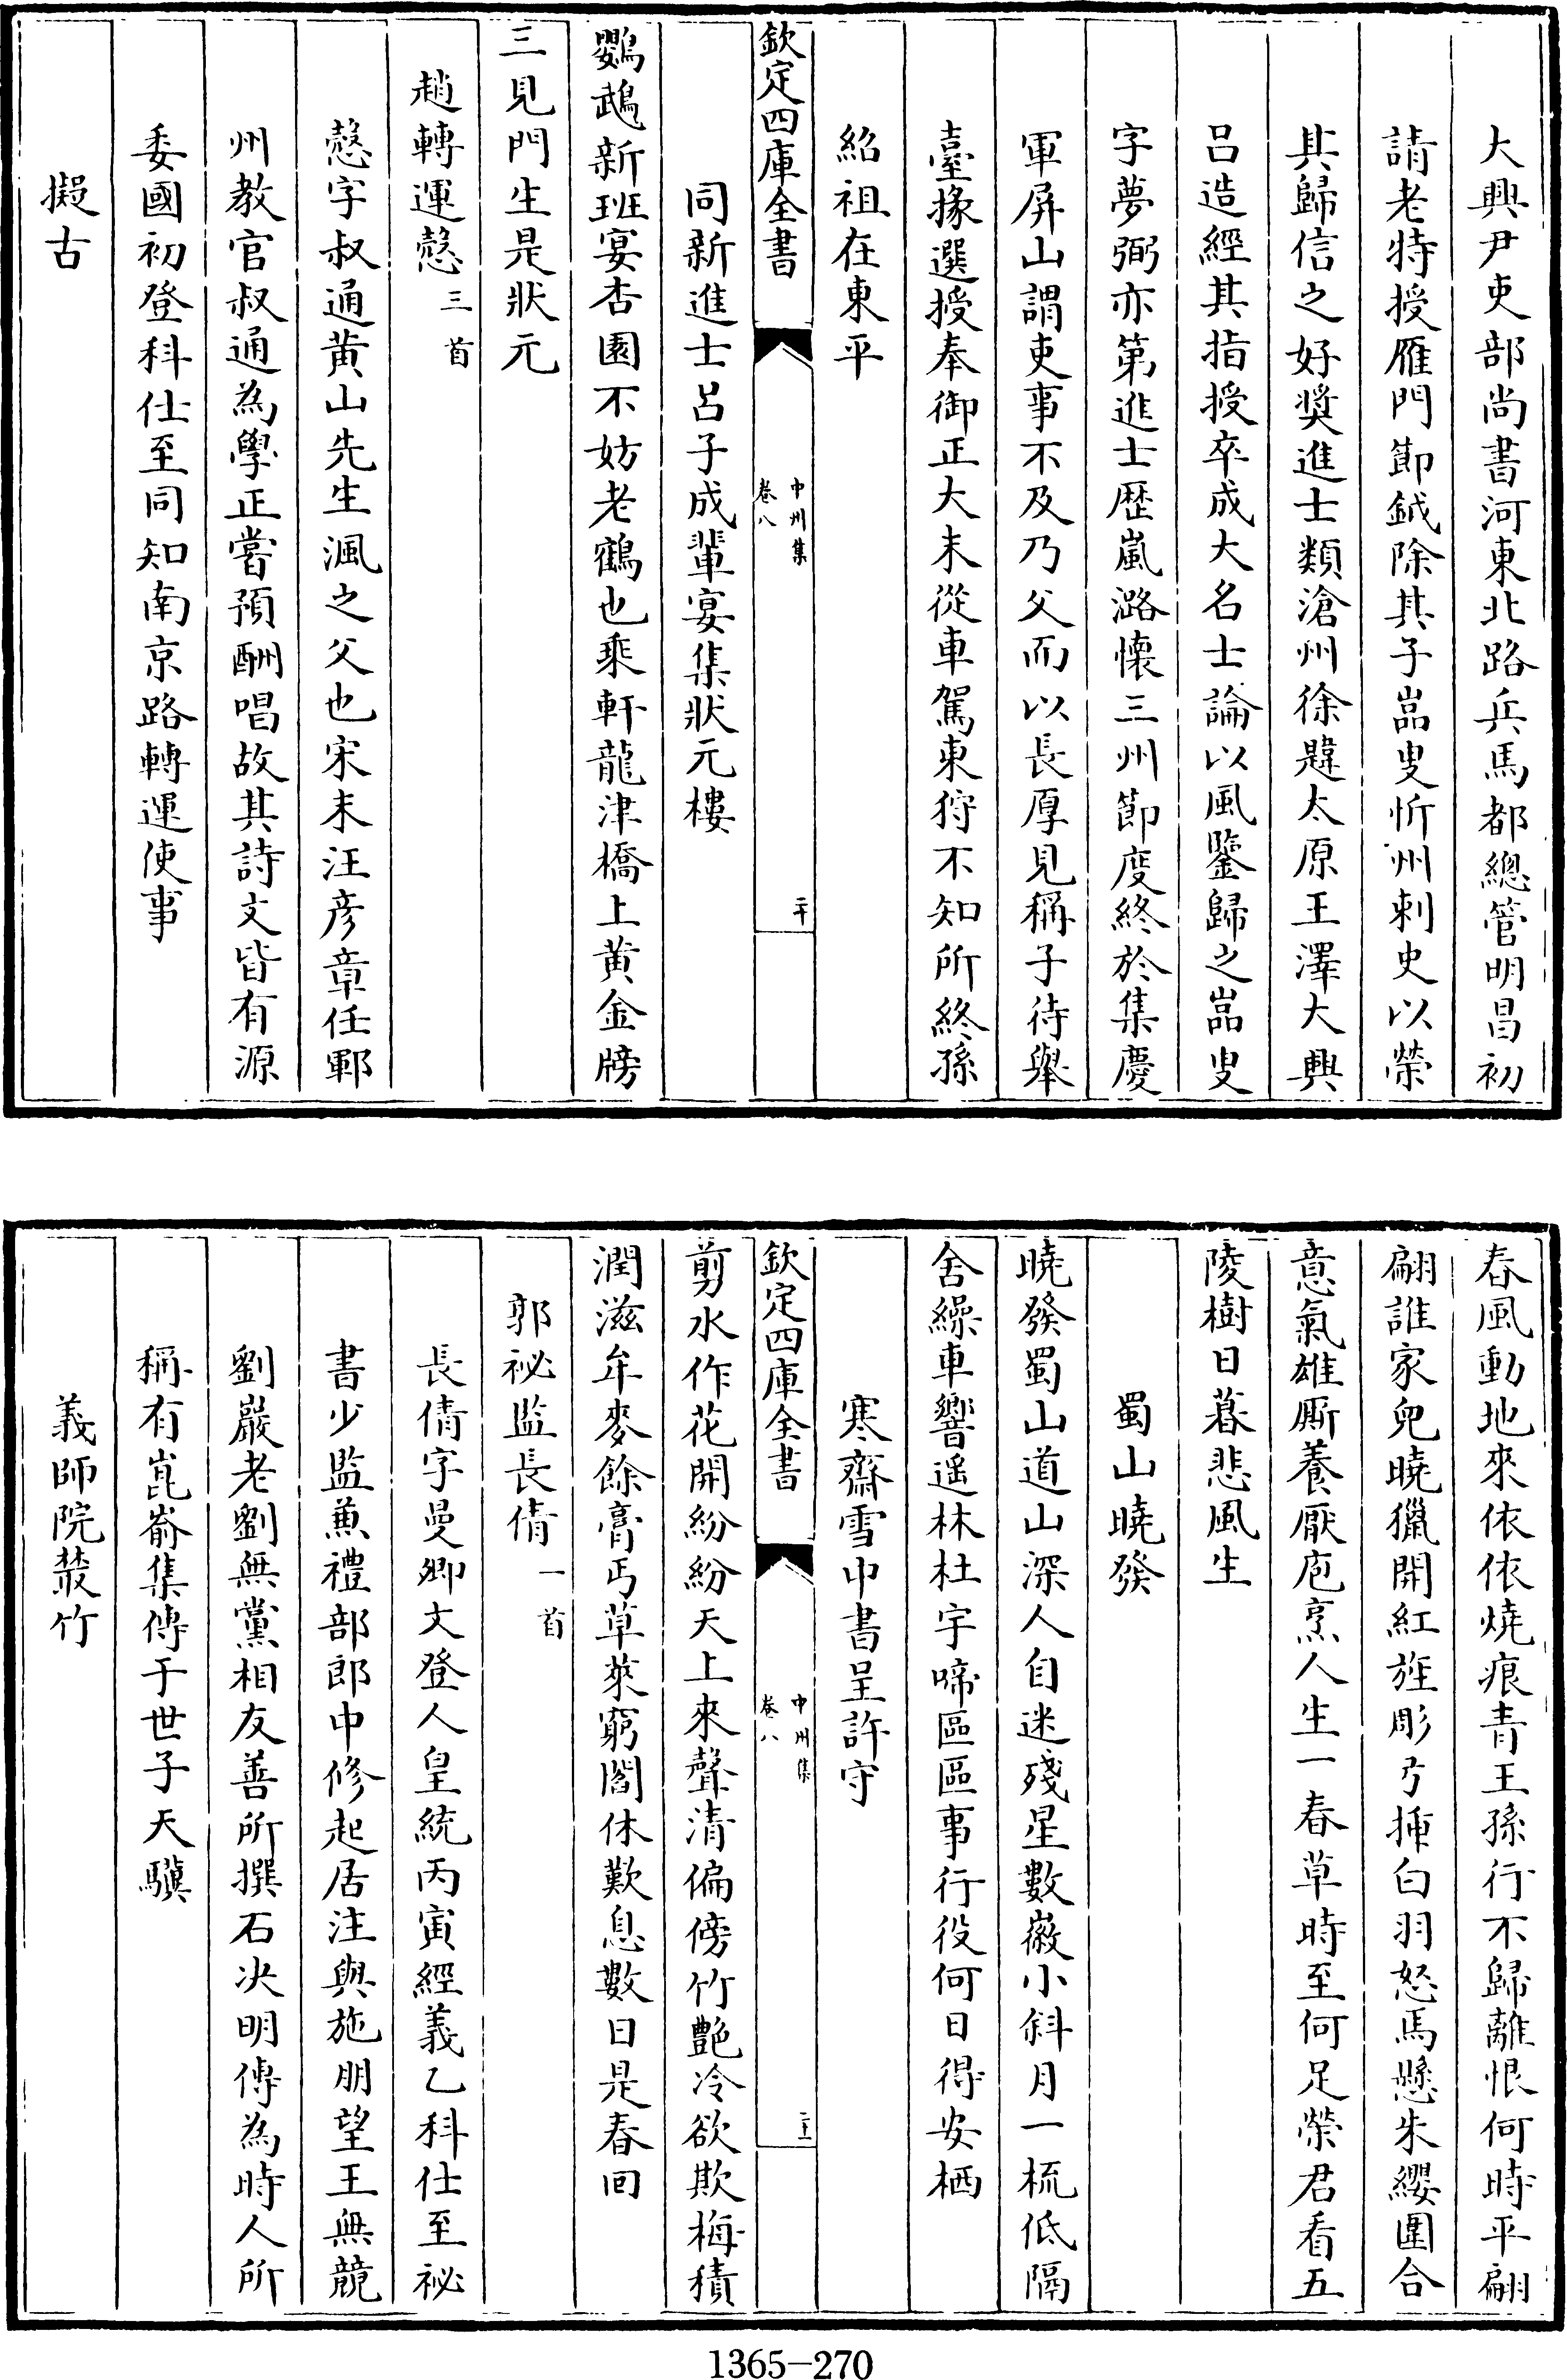 大興尹吏部尚書河東北路兵馬都總管明昌初
請老特授雁門節鉞除其子嵓叟忻州刺史以榮
其歸信之好奨進士類滄州徐韙太原王澤大興
吕造經其指授卒成大名士論以風鑒歸之嵓叟
字夢弼亦第進士歴嵐潞懷三州節度終於集慶
軍屏山謂吏事不及乃父而以長厚見稱子待舉
臺掾選授奉御正大末從車駕東狩不知所終孫
紹祖在東平
欽定四庫全書
中州集
卷八
二十
同新進士吕子成輩宴集狀元樓
鸚鵡新班宴杏園不妨老鶴也乘軒龍津橋上黄金牓
三見門生是狀元
趙轉運慤三首
慤字叔通黄山先生渢之父也宋末汪彦章任鄆
州教官叔通為學正嘗預酬唱故其詩文皆有源
委國初登科仕至同知南京路轉運使事
擬古
春風動地來依依燒痕青王孫行不歸離恨何時平翩
翩誰家兒曉獵開紅旌彫弓揷白羽怒馬懸朱纓圍合
意氣雄厮養厭庖烹人生一春草時至何足榮君看五
陵樹日暮悲風生
蜀山曉發
曉發蜀山道山深人自迷殘星數㣲小斜月一梳低隔
舍繰車響遥林杜宇啼區區事行役何日得安栖
寒齋雪中書呈許守
欽定四庫全書
中州集
卷八
二十一
剪水作花開紛紛天上來聲清偏傍竹艶冷欲欺梅積
潤滋牟麥餘膏丐草萊窮閻休歎息數日是春回
郭祕監長倩一首
長倩字曼卿文登人皇統丙寅經義乙科仕至祕
書少監兼禮部郎中修起居注與施朋望王無競
劉巖老劉無黨相友善所撰石决明傳為時人所
稱有崑崙集傳于世子天驥
義師院叢竹
1365-270